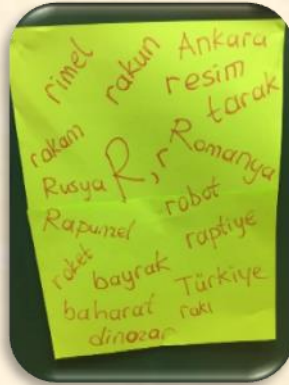 rimel
rakun
Ankara
resim
tarak
rakam
R, r
Romanya
Rusya
Rapunzel
robot
raptiye
roket
bayrak
Türkiye
baharat
rakı
dinozar